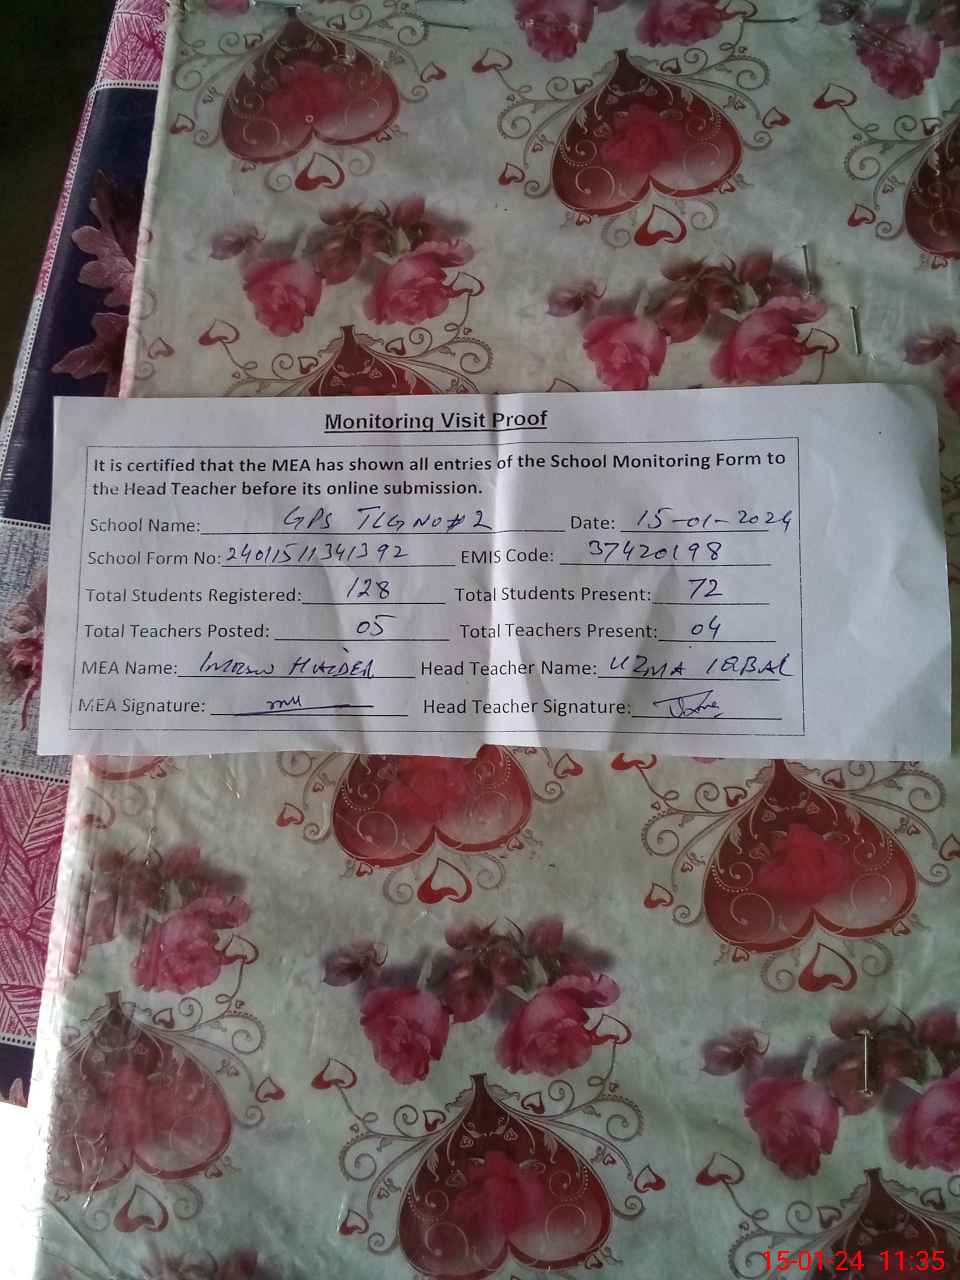 Monitoring Visit Proof
It is certified that the MEA has shown all entries of the School Monitoring Form to
the Head Teacher before its online submission.
School Name: GPS TLG NO # 2 Date: 15-01-2024
School Form No: 24011511341392 EMIS Code: 37420198
Total Students Registered: 128 Total Students Present: 72
Total Teachers Posted: 05 Total Teachers Present: 04
MEA Name: IMRAN HAIDER Head Teacher Name: UZMA IQBAL
MEA Signature: Head Teacher Signature:
15-01-24 11:35